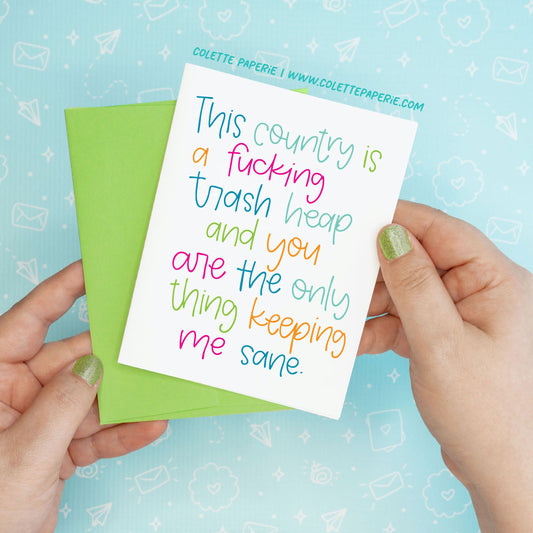 COLETTE PAPERIE | WWW.COLETTEPAPERIE.COM
This country is
a fucking
trash heap
and you
are the only
thing keeping
me sane.